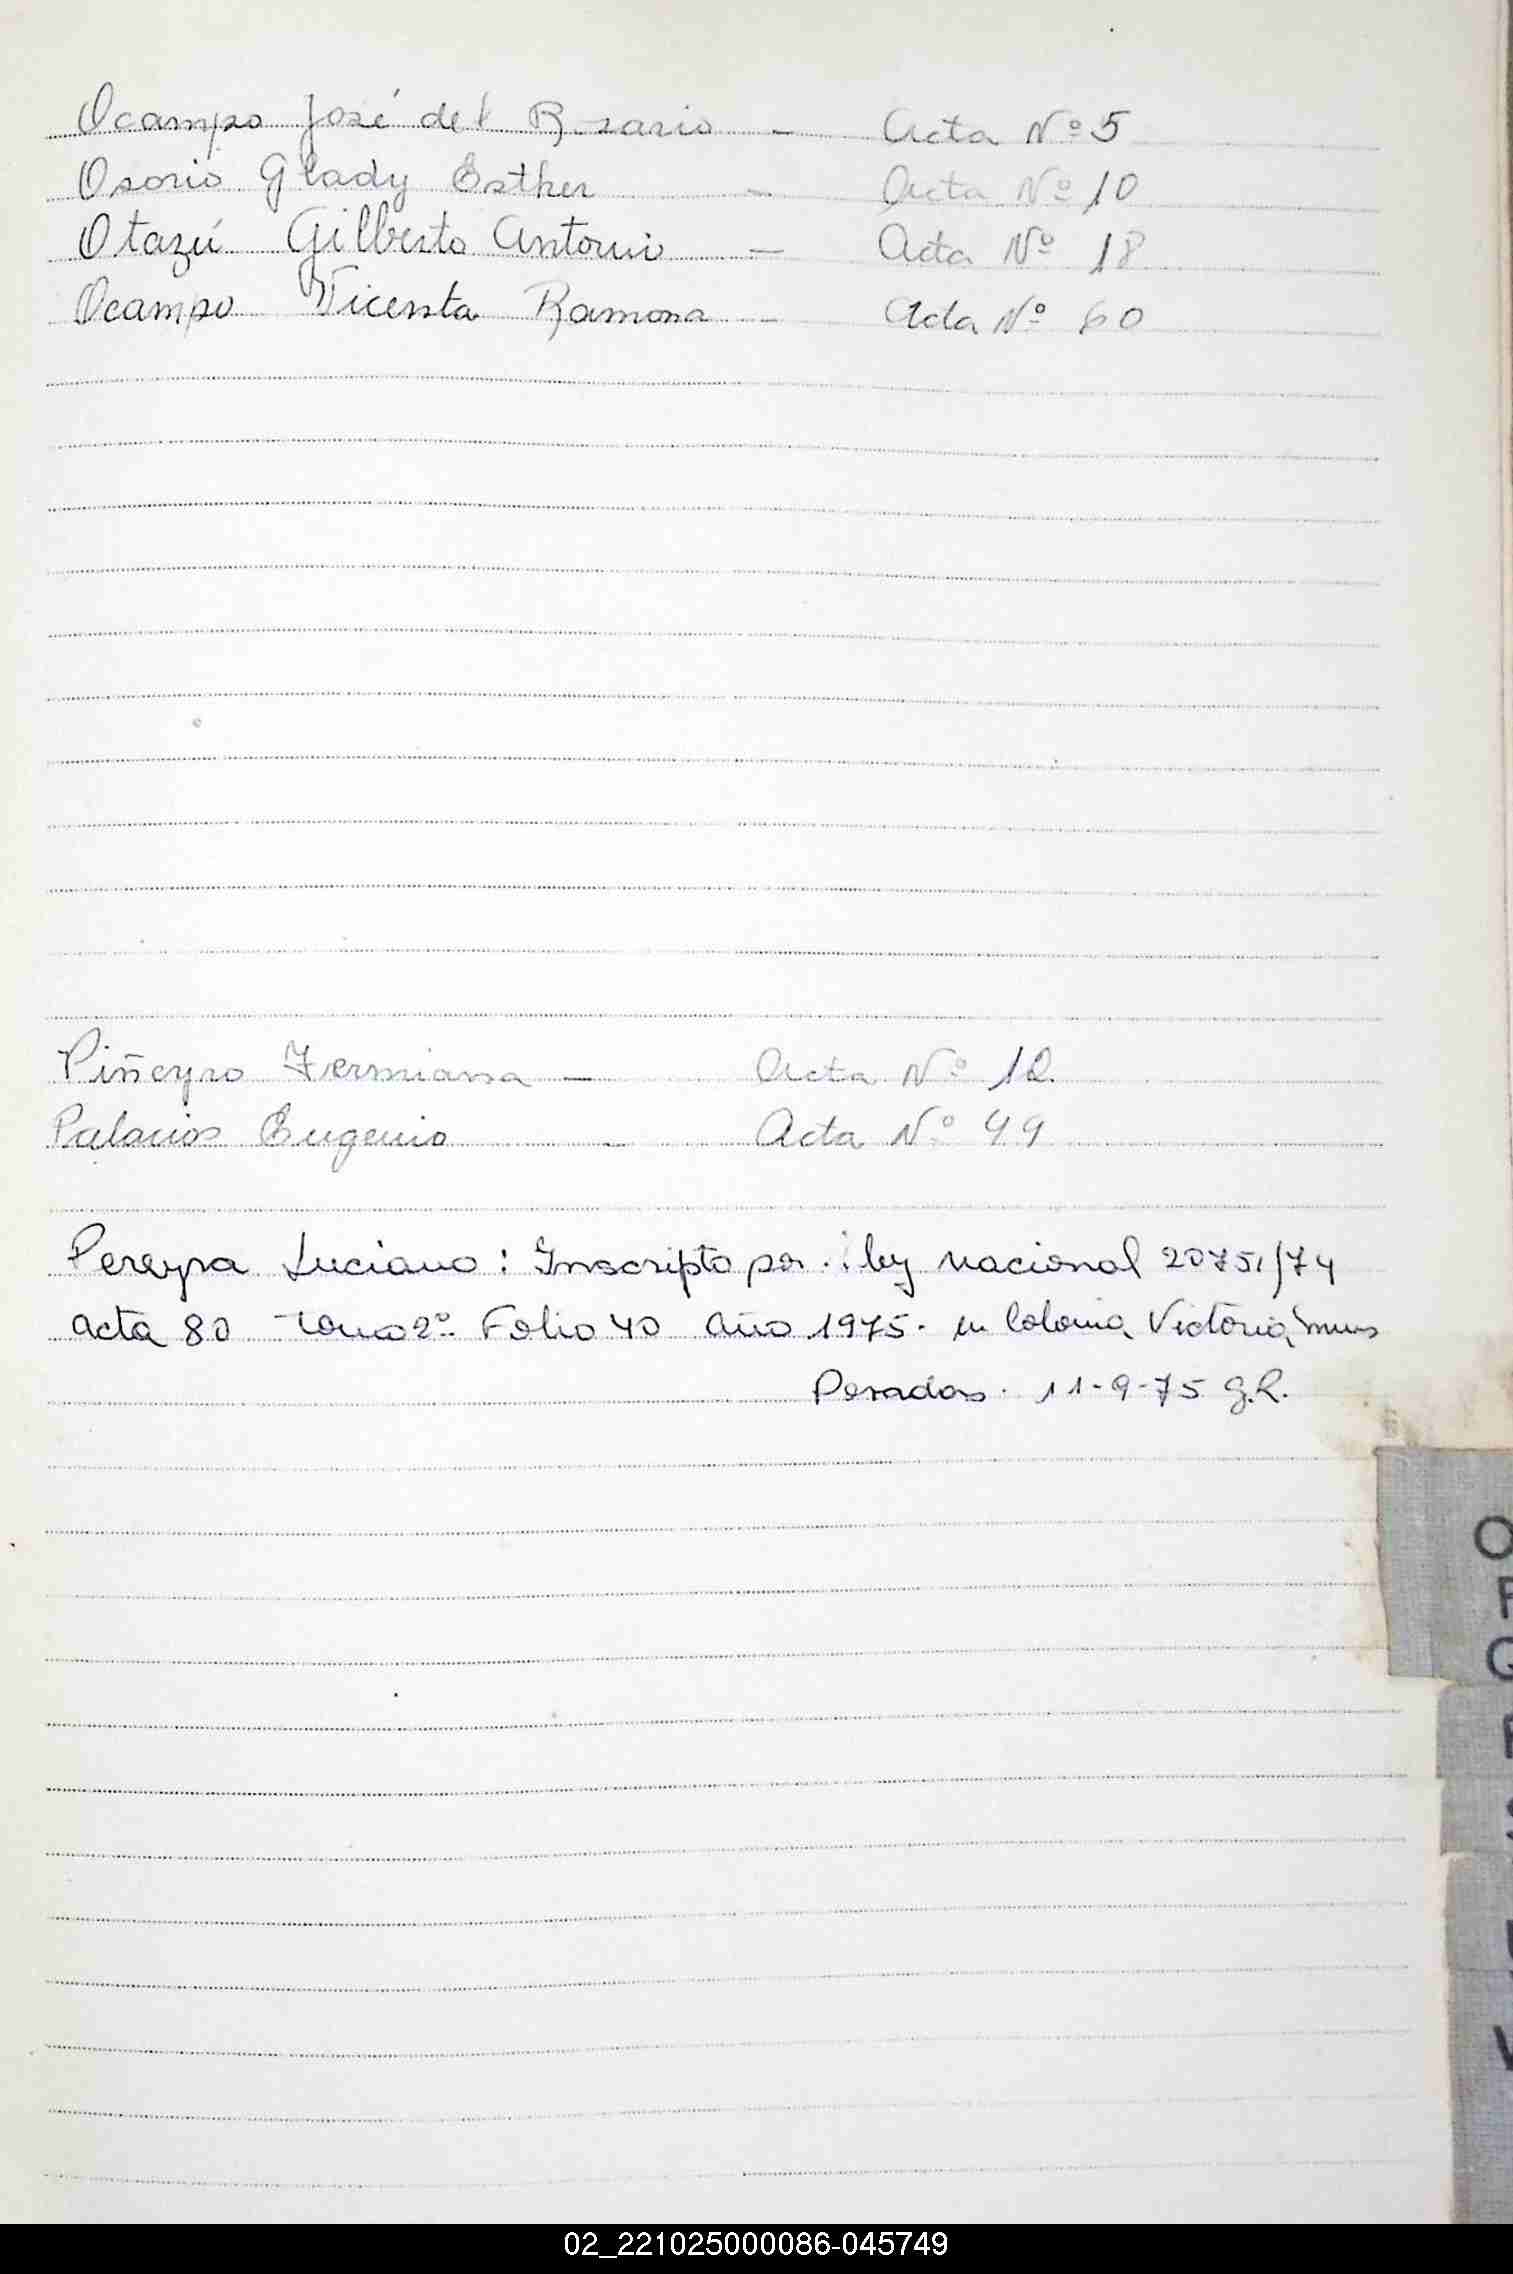 Ocampo José del Rosario - Acta Nº 5
Osorio Glady Esther - Acta Nº 10
Otazú Gilberto Antonio - Acta Nº 18
Ocampo Vicenta Ramona - Acta Nº 60
Piñeyro Fermiana - Acta Nº 12
Palacios Eugenio - Acta Nº 49
Pereyra Luciano: Inscripto por ley nacional 20751/74
acta 80 Tomo 2º Folio 40 año 1975. en Colonia Victoria,
Posadas. 11-9-75 G.R.
O
P
Q
R
S
U
V
02_221025000086-045749